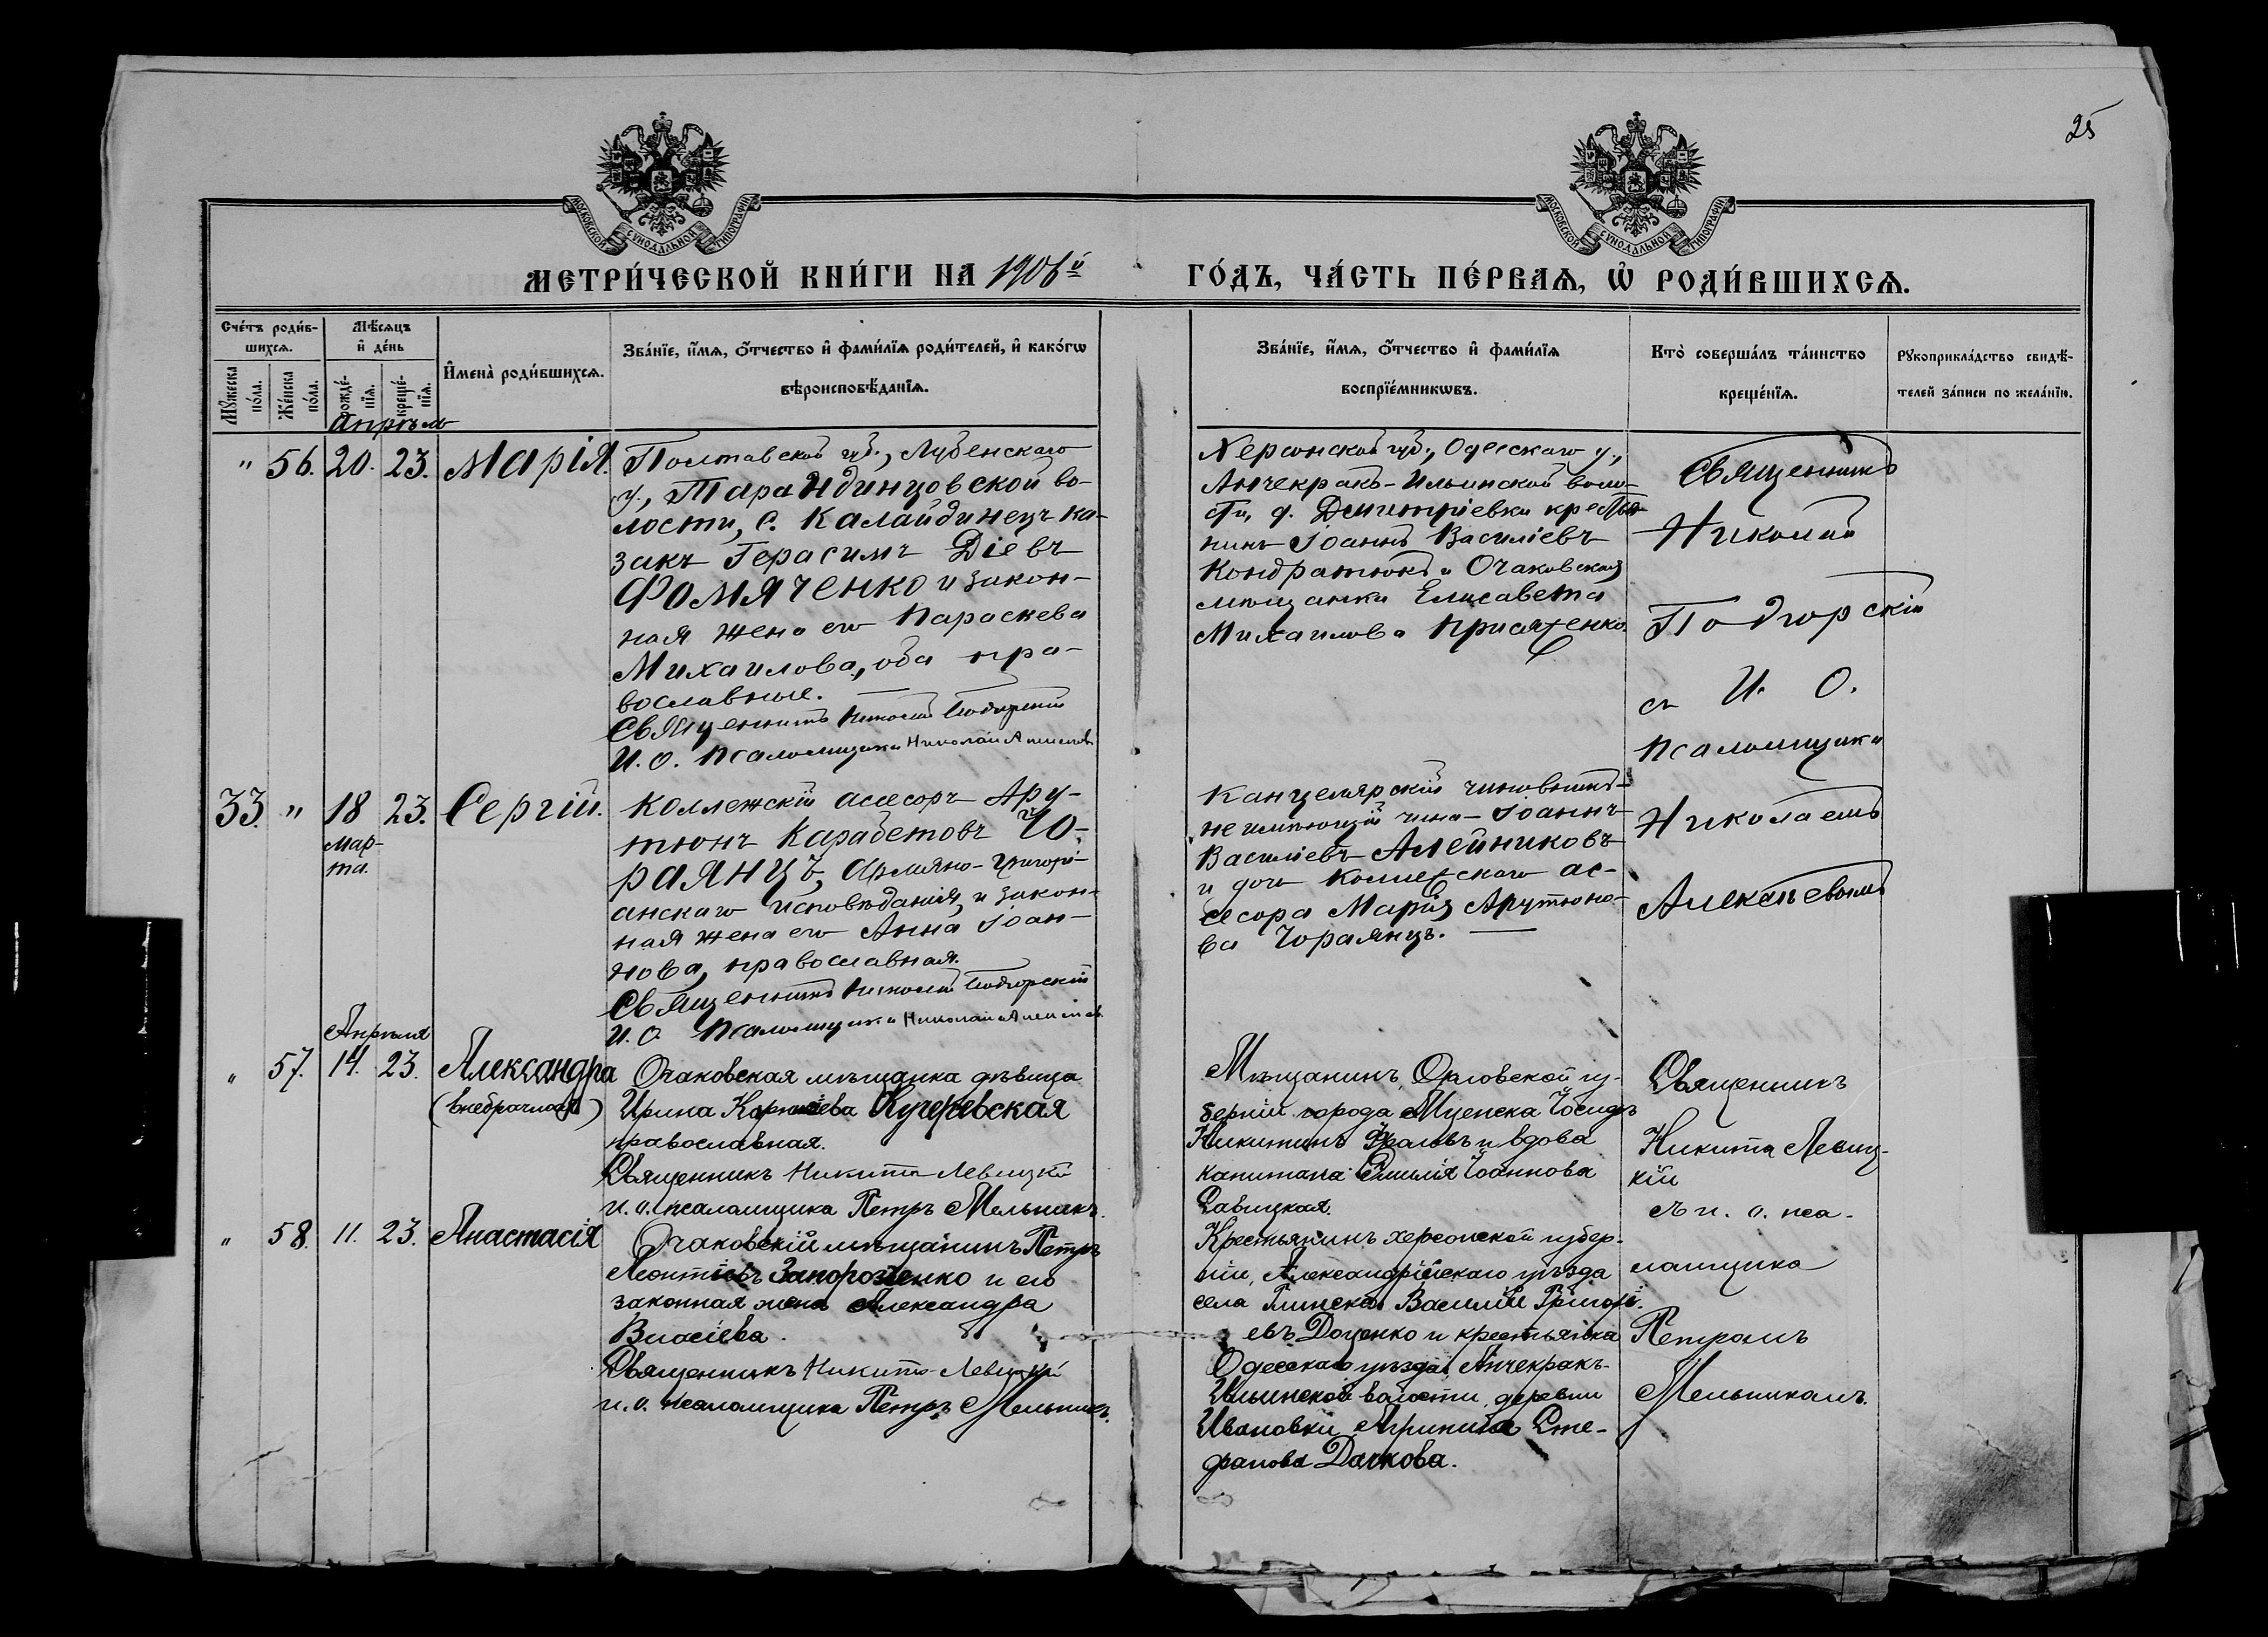 25
МОСКОВСКОЙ СѴНОДАЛЬНОЙ ТИПОГРАФІИ
МОСКОВСКОЙ СѴНОДАЛЬНОЙ ТИПОГРАФІИ
МЕТРИ́ЧЕСКОЙ КНИ́ГИ НА 1906й
ГО́ДЪ, ЧА́СТЬ ПЕ́РВАѦ, Ѡ҆ РОДИ́ВШИХСѦ.
Сче́тъ роди́в-
шихсѧ.
Мꙋ́жеска по́ла.
Же́нска по́ла.
Мѣ́сѧцъ
и҆ де́нь
рожде́-
нїѧ.
креще́-
нїѧ.
И҆мена̀ роди́вшихсѧ.
Зва́нїе, и҆́мѧ, ѻ҆́тчество и҆ фами́лїѧ роди́телей, и҆ како́гѡ
вѣроисповѣ́данїѧ.
Зва́нїе, и҆́мѧ, ѻ҆́тчество и҆ фами́лїѧ
воспрїе́мникѡвъ.
Кто̀ соверша́лъ та́инство
креще́нїѧ.
Рꙋкоприкла́дство свидѣ́-
телей за́писи по жела́нїю.
Апрѣль
" 56. 20. 23. Марія.
Полтавской губ., Лубенскаго
у., Тарандинцовской во-
лости, с. Калайдинецъ ка-
закъ Герасимъ Діевъ
Фомяченко и закон-
ная жена его Параскева
Михаилова, оба пра-
вославные.
Священникъ Николай Подгорскій
И. О. Псаломщика Николай Алексѣев
Херсонской губ., Одесскаго у.,
Анчекракъ-Ильинской воло-
сти, д. Димитріевки крестья-
нинъ Іоаннъ Василіевъ
Кондратюкъ и Очаковская
мѣщанка Елисавета
Михаилова Присяженко.
Священникъ
Николай
Подгорскій
съ И. О.
Псаломщика
Николаемъ
Алексѣевымъ
33. " 18 23. Сергій.
Мар-
та.
Коллежскій асесоръ Ару-
тюнъ Карабетовъ Чо-
раянцъ, Армяно-Григорі-
анскаго исповѣданія, и закон-
ная жена его Анна Іоан-
нова, православная.
Священникъ Николай Подгорскій
И. О. Псаломщика Николай Алексѣев
Канцелярскій чиновникъ-
неимѣющій чина- Іоаннъ
Василіевъ Алейниковъ
и дочь Коллежскаго ас-
сесора Марія Арутюно-
ва Чораянцъ.
Апрѣля
" 57. 14. 23. Александра
(внебрачная)
Очаковская мѣщанка дѣвица
Ирина Корниліева Кучеревская
православная.
Священникъ Никита Левицкій
и. о. псаломщика Петръ Мельникъ.
Мѣщанинъ Орловской гу-
берніи города Мценска Іосифъ
Никитинъ и вдова
капитана Емилія Іоаннова
Савицкая.
Священникъ
Никита Левиц-
кій
съ и. о. пса-
ломщика
Петромъ
Мельникомъ.
" 58. 11. 23. Анастасія
Очаковскій мѣщанинъ Петръ
Леонтіевъ Запорозченко и его
законная жена Александра
Власіева.
Священникъ Никита Левицкій
и. о. псаломщика Петръ Мельникъ.
Крестьянинъ херсонской губер-
ніи, Александрійскаго уѣзда
села Глинска Василій Григорі-
евъ Доценко и крестьянка
Одесскаго уѣзда Анчекракъ-
Ильинской волости, деревни
Ивановки Агрипина Сте-
фанова Дачкова.